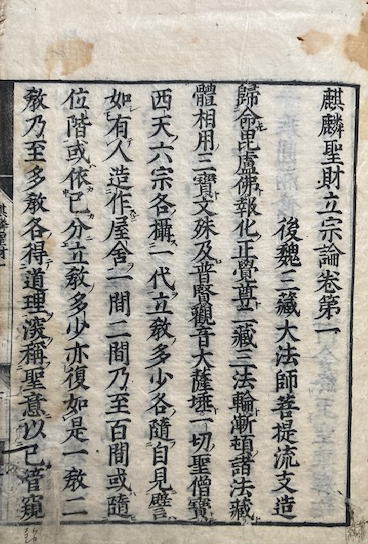 麒麟聖財立宗論卷第一
後魏三藏大法師菩提流支造
歸命毘盧佛報化正覺尊二藏三法輪漸頓諸法藏
體相用三寶文殊及普賢觀音大薩埵一切聖僧寶
西天六宗各構一代立敎多少各隨自見譬
如有人造作屋舍一間二間乃至百間或隨
位階或依已分立敎多少亦復如是一敎二
敎乃至多敎各得道理濫稱聖意以已管窺